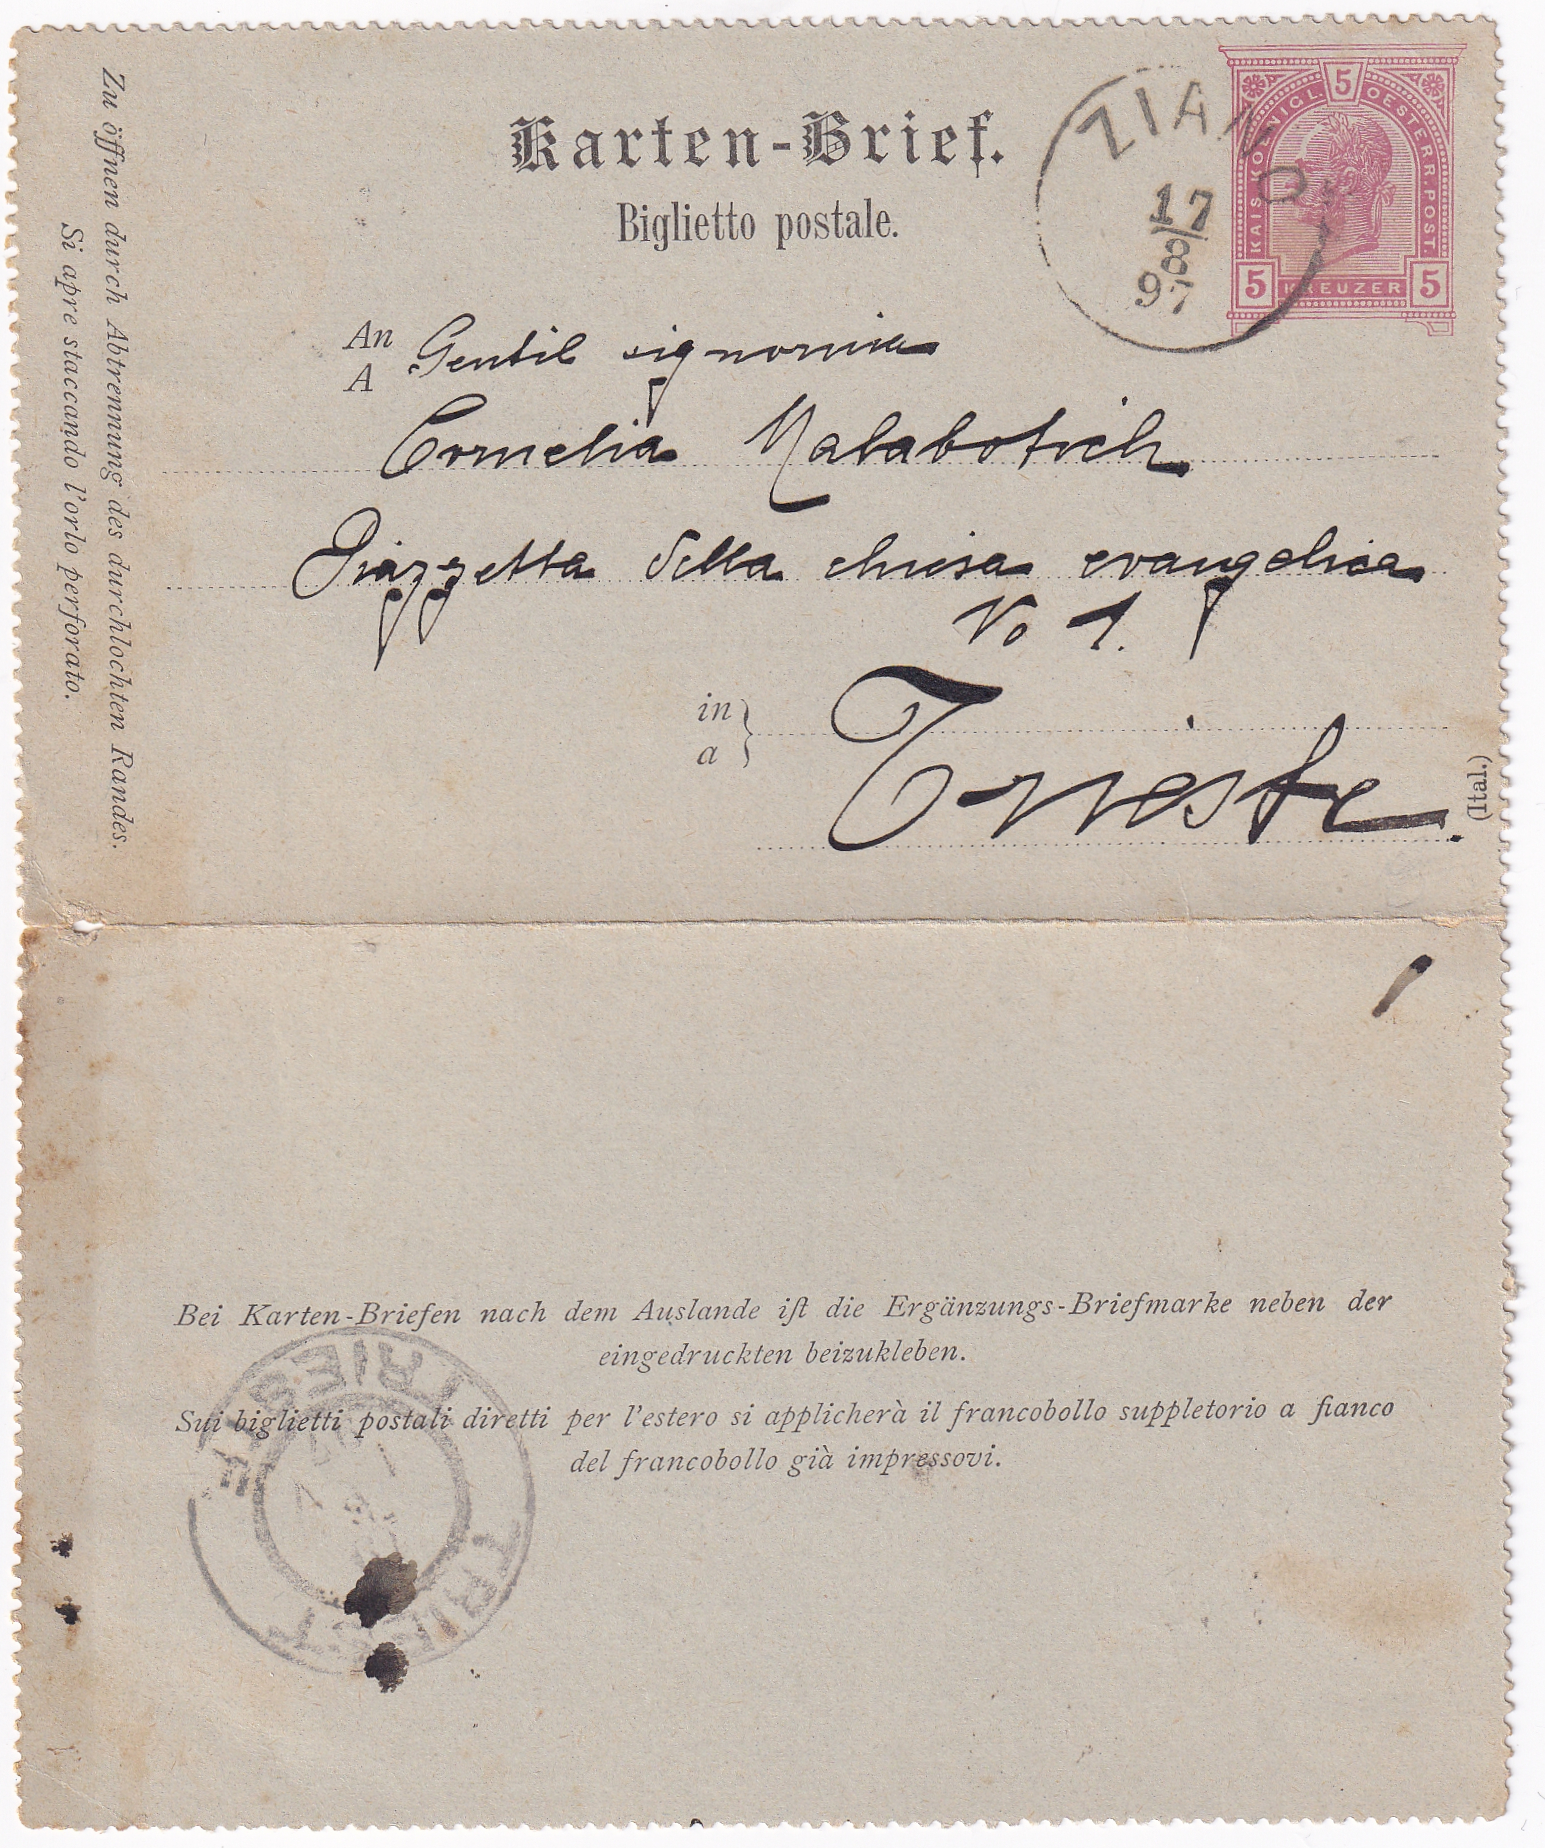 Karten-Brief.
Biglietto postale.
ZIANO
17
8
97
5
KAIS. KOENIGL. OESTERR. POST.
5 KREUZER 5
An Gentil signorina
A
Cornelia Malabotich
Piazzetta della chiesa evangelica
No 1.
in
a
Trieste.
(Ital.)
Zu öffnen durch Abtrennung des durchlochten Randes.
Si apre staccando l'orlo perforato.
Bei Karten-Briefen nach dem Auslande ist die Ergänzungs-Briefmarke neben der
eingedruckten beizukleben.
Sui biglietti postali diretti per l'estero si applicherà il francobollo suppletorio a fianco
del francobollo già impressovi.
TRIESTE
TRIEST